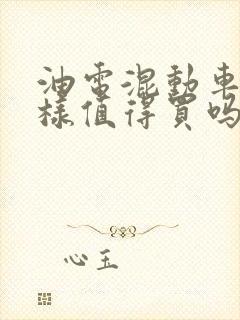 油電混動車
樣值得買嗎
心玉